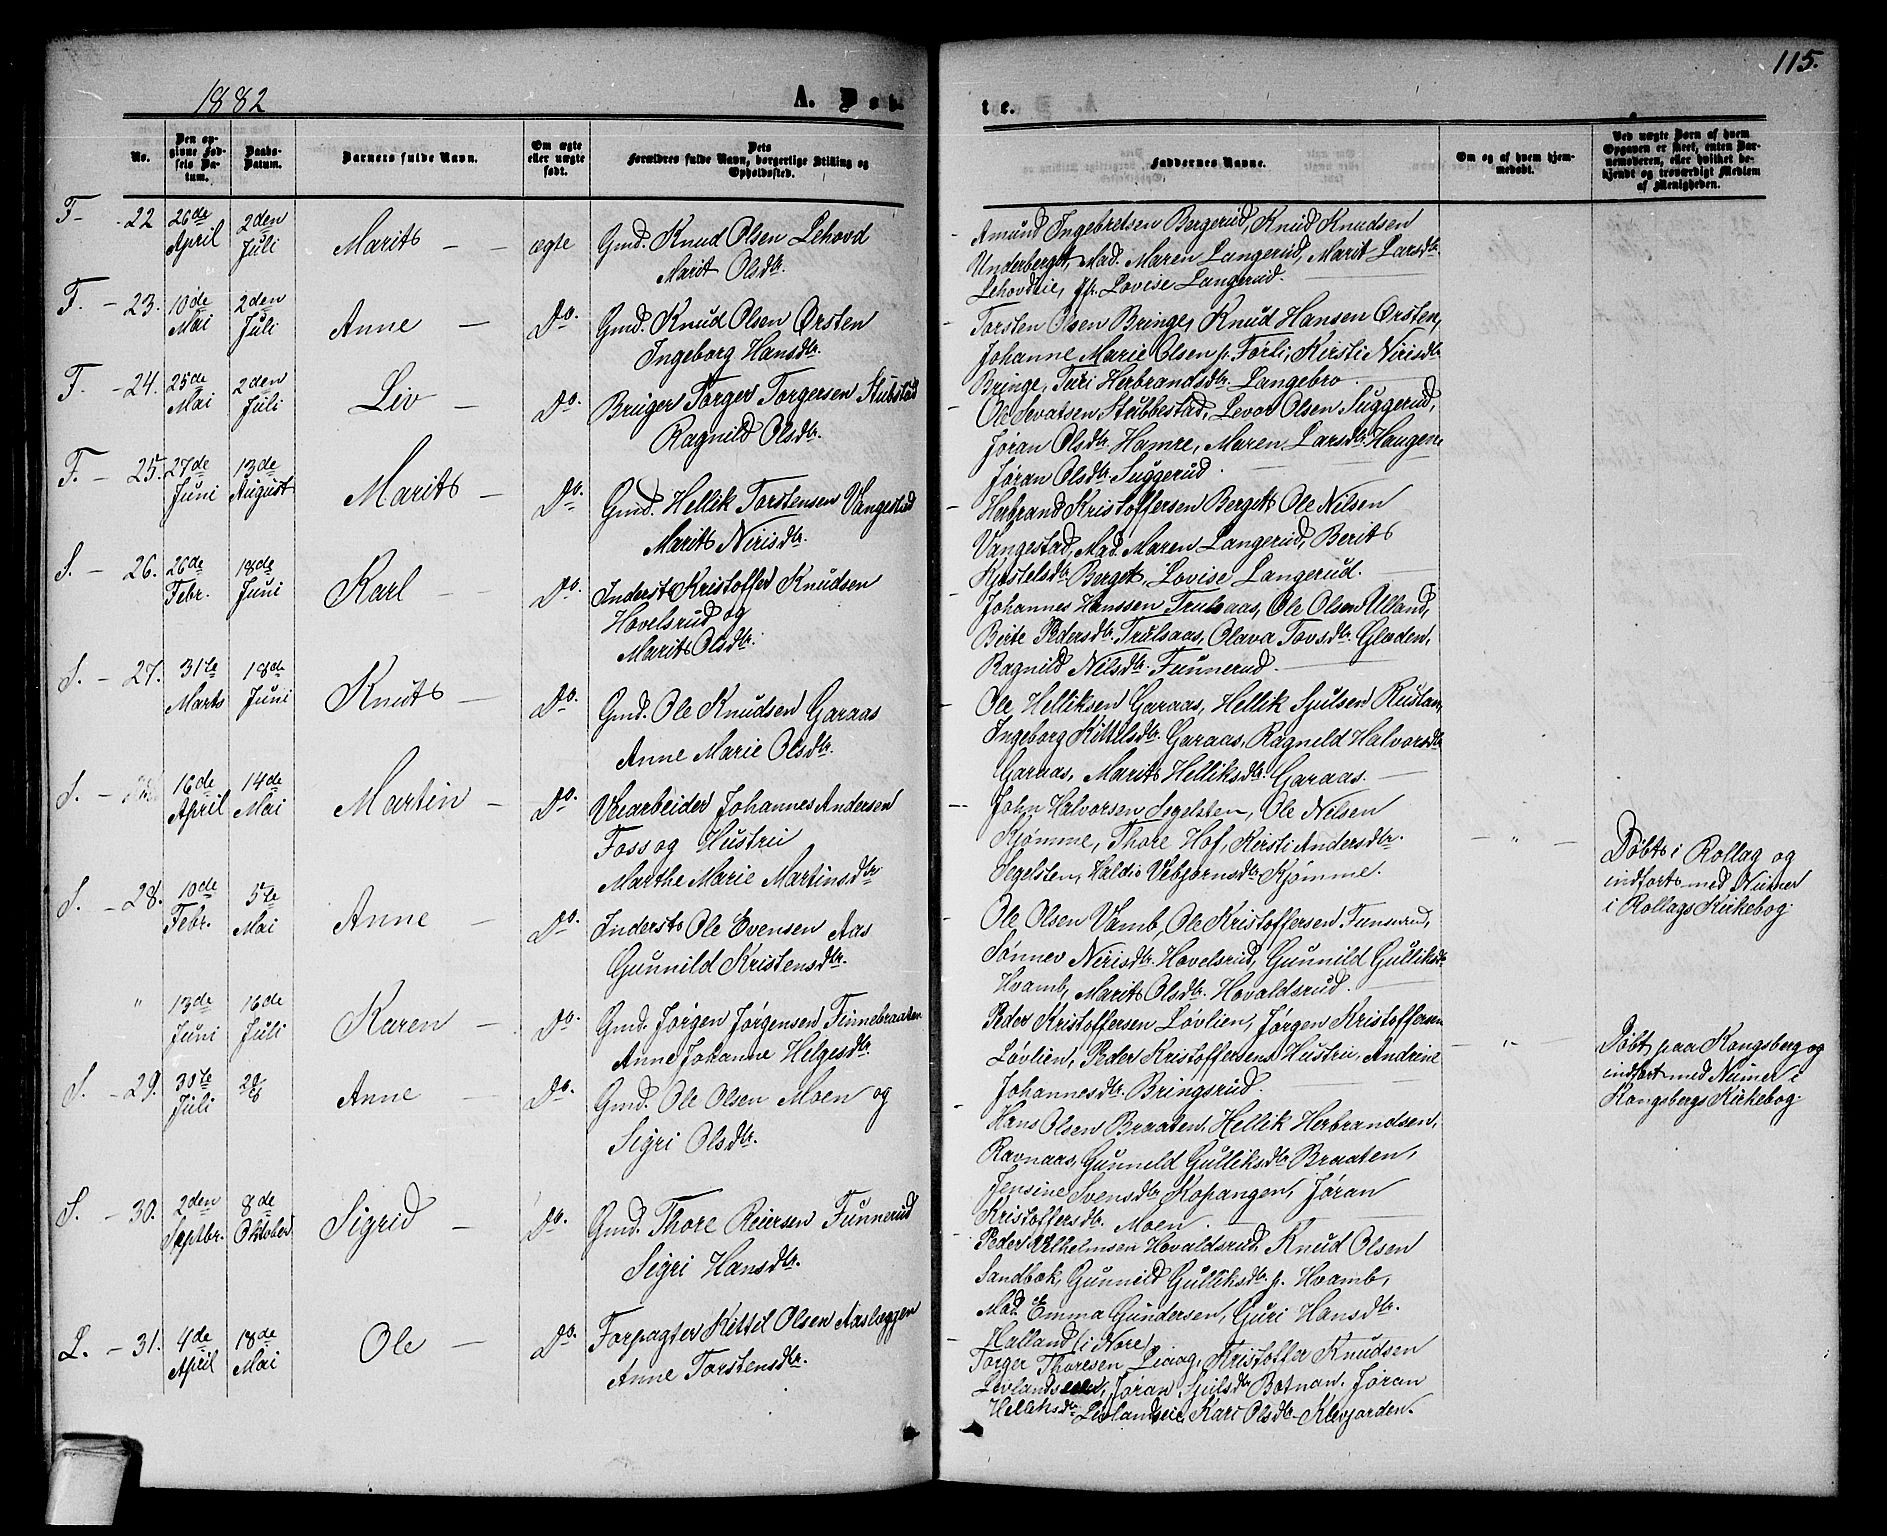 1882
A. Døb-
te.
115.
No.
Den opgivne Fødsels Datum.
Daabs-Datum.
Barnets fulde Navn.
Om ægte eller uægte født.
Dets Forældres fulde Navn, borgerlige Stilling og Opholdssted.
Faddernes Navne.
Om og af hvem hjemmedøbt.
Ved uægte Børn af hvem Opgaven er skeet, enten Barnemoderen, eller hvilket bekjendt og troværdigt Medlem af Menigheden.
F. - 22 26de April 2den Juli Marit - - ægte Gmd. Knud Olsen Lehovd
Marit Olsdtr.
Amund Ingebretsen Bergerud, Knud Knudsen
Underberget, Mad. Maren Langerud, Marit Larsdtr.
Lehovdeie, Jfr. Lovise Langerud.
F. - 23. 10de Mai 2den Juli Anne - Do. Gmd. Knud Olsen Ørsten
Ingeborg Hansdtr.
Torsten Olsen Bringe, Knud Hansen Ørsten,
Johanne Marie Olsen p. Førli, Kirsti Nirisdtr.
Bringe, Turi Herbrandsdtr. Langebro
F. - 24. 25de Mai 2den Juli Liv - Do. Bruger Torger Torgersen Stubstad
Ragnild Olsdtr.
Ole Sevatsen Stubbestad, Levor Olsen Suggerud,
Jøran Olsdtr. Hamre, Maren Larsdtr. Haugen
Jøran Olsdtr. Suggerud.
F. - 25. 27de Juni 13de August Marit - Do. Gmd. Hellik Torstensen Vangestad
Marit Nirisdtr.
Herbrand Kristoffersen Berget, Ole Nilsen
Vangestad, Mad. Maren Langerud, Berit
Kjøstelsdtr. Berget, Lovise Langerud.
S. - 26. 26de Febr. 18de Juni Karl - - Do. Inderst Kristoffer Knudsen
Hovelsrud og
Marit Olsdtr.
Johannes Hanssen Trulsaas, Ole Olsen Ulland,
Birte Pedersdtr. Trulsaas, Olava Tovsdtr. Glæden,
Ragnild Nilsdtr. Funnerud.
S. - 27. 31te Marts 18de Juni Knut - Do. Gmd. Ole Knudsen Garaas
Anne Marie Olsdtr.
Ole Helliksen Garaas, Hellik Sjulsen Rustan,
Ingeborg Kittelsdtr. Garaas, Ragnild Halvorsdtr.
Garaas, Marit Helliksdtr. Garaas.
S. - 16de April 14de Mai Martin - Do. Veiarbeider Johannes Andersen
Foss og Hustru
Marthe Marie Martinsdtr
John Halvorsen Segelsten, Ole Nilsen
Kjømme, Thore Hof, Kirsti Andersdtr.
Segelsten, Haldis Vebjørnsdtr. Kjømme.
- " -
Døbt i Rollag og
indført med Numer
i Rollags Kirkebog.
S. - 28. 10de Febr. 5te Mai Anne - Do. Inderst Ole Evensen Aas
Gunnild Kristensdtr.
Ole Olsen Vamb, Ole Kristoffersen Funnerud,
Sønnev Nirisdtr. Hovelsrud, Gunnild Gulliksdtr.
Hvamb, Marit Olsdtr. Hovaldsrud.
" 13de Juni 16de Juli Karen - Do. Gmd. Jørgen Jørgensen Finnebraaten
Anne Johanne Helgesdtr.
Peder Kristoffersen Løvlien, Jørgen Kristoffersen
Løvlien, Peder Kristoffersens Hustru, Andrine
Johannesdtr. Bringsrud.
- " -
Døbt paa Kongsberg og
indført med Numer i
Kongsbergs Kirkebog.
S. - 29. 30te Juli 20/8 Anne - Do. Gmd. Ole Olsen Moen og
Sigri Olsdtr.
Hans Olsen Braaten, Hellik Herbrandsen,
Ravnaas, Gunneld Gulliksdtr. Braaten,
Jensine Svensdtr. Kopangen, Jøran
Kristoffersdtr. Moen.
S. - 30. 2den Septbr. 8de Oktober Sigrid - Do. Gmd. Thore Reiersen Funnerud
Sigri Hansdtr.
Peder Vilhelmsen Hovaldsrud, Knud Olsen
Sandbæk, Gunneld Gulliksdtr. p. Hvamb,
Mad. Emma Gundersen, Guri Hansdtr.
Halland (i Nore)
L. - 31. 4de April 18de Mai Ole - Do. Forpagter Kittil Olsen Aasleggen
Anne Torstensdtr.
Torger Thoresen Liaag, Kristoffer Knudsen
Livlandseien, Jøran Sjulsdtr. Botnan, Jøran
Helliksdtr. Livlandseie, Kari Olsdtr. Klevjorden.